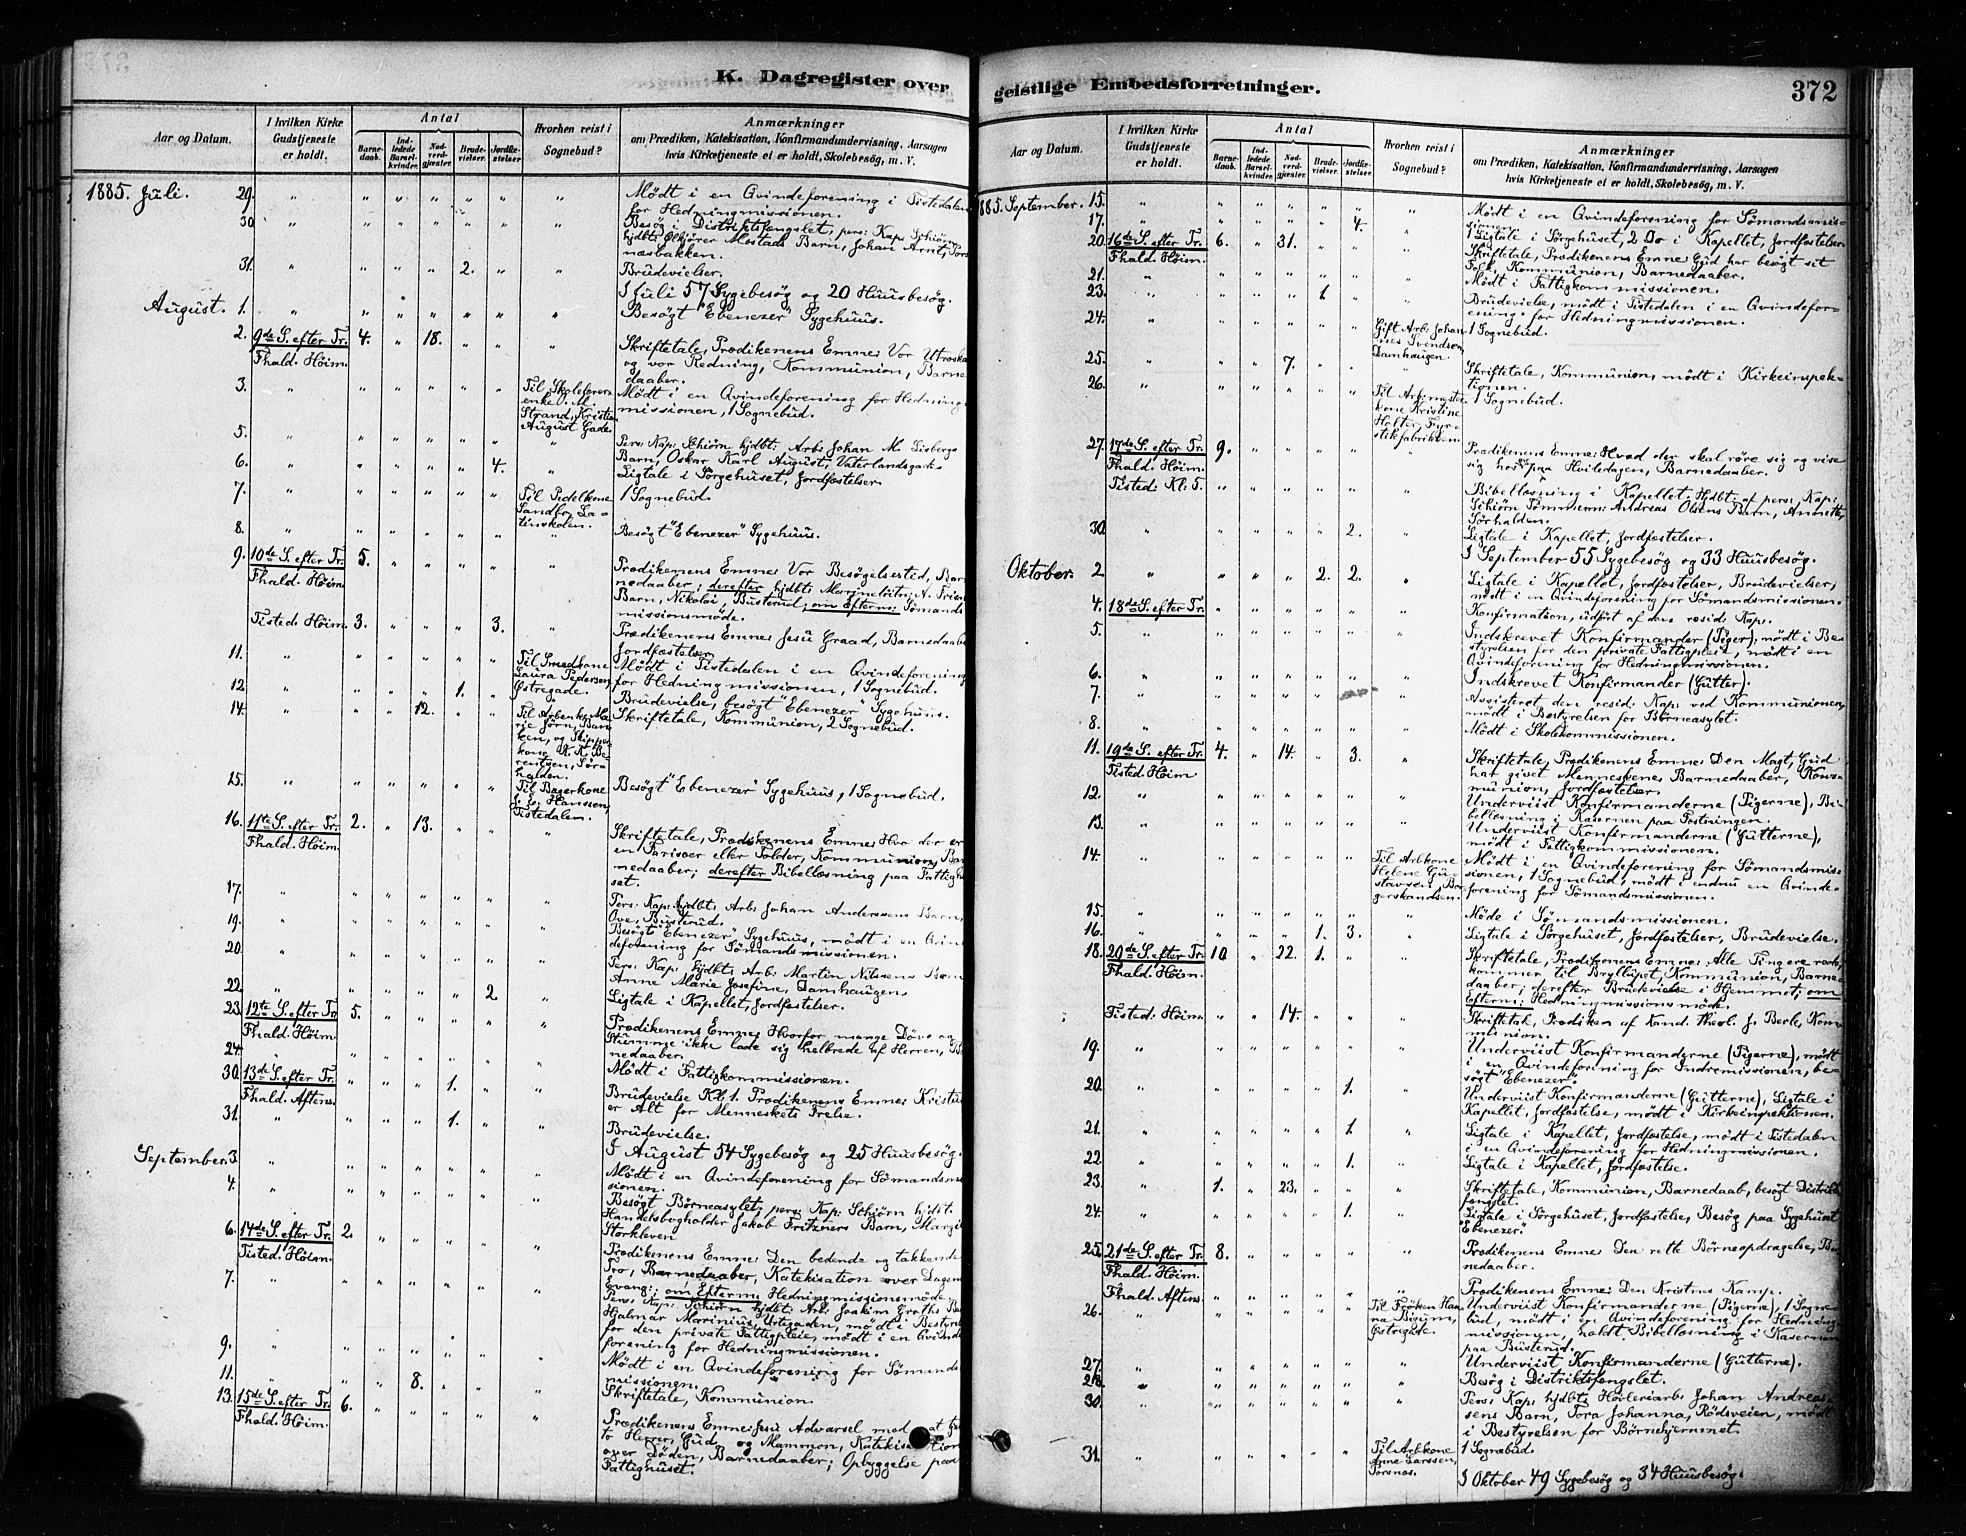 K. Dagregister over
Aar og Datum.
I hvilken Kirke Gudstjeneste er holdt.
Antal
Barnedaab.
Indledede Barselkvinder.
Nadverdgjæster.
Brudevielser.
Jordfæstelser
Hvorhen reist i Sognebud?
Anmærkninger
om Prædiken, Katekisation, Konfirmandundervisning, Aarsagen
hvis Kirketjeneste ei er holdt, Skolebesøg, m. V.
1885. Juli. 29. Mödt i en Qvindeforening i Tistedalen
for Hedningmissionen.
30 Besög i Distriktsfengslet, pers: Kap: Schiörn
hjdbt: Ølkjörer Mostads Barn, Johan Arnt, Tors
næsbakken.
31. 2. Brüdevielser.
I Juli 57 Sygebesög og 20 Huusbesög.
August. 1. Besögt "Ebenezer" Sygehuus.
2. 9de S. efter Tr. 4. 18. Skriftetale, Prædikenens Emne: Vor Utroska
Fhald. Höim. og vor Redning, Kommünion, Barne
daaber.
3. Til Skoleforer- Mödt i en Qvindeforening for Hedning-
enke M. missionen, 1 Sognebud.
Strand, Kristian
August Gade.
5. Pers: Kap: Schiörn hjdbt: Arb: Johan M. Lisbergs
6. 4. Barn, Oskar Karl August, Vaterlandsgade
Ligtale i Sörgehüset, Jordfæstelser.
7. Til Pedelkone 1 Sognebud.
Sandbo, La-
tinskolen.
8. Besögt "Ebenezer" Sygehuus.
9. 10de S. efter Tr. 5. Prædikenens Emne: Vor Besögelsestid, Bar
Fhald. Höim. nedaaber; derefter hjdbt: A. Friis
Barn, Nikolai, Busterud; om Efterm: Sömands
missionsmöde.
Tisted: Höim. 3. 3. Prædikenens Emne: Jesu Graad, Barnedaaber
Jordfæstelser
11. Til Smedkone Mödt i Tistedalen i en Qvindeforening
Laura Pedersen, for Hedningmissionen, 1 Sognebud.
12. 1. Østregade. Brüdevielse, besögt "Ebenezer" Sygehuus.
14. 12. Til Arbenke Ma- Skriftetale, Kommünion, 2 Sognebud.
rie Jörn, Bak-
ken, og Skipper-
kone N. K. Be-
rentsen, Sör-
halden.
15. Til Bagerkone Besögt "Ebenezer" Sygehuus, 1 Sognebud.
Hanssen,
Tistedalen.
16. 11te S. efter Tr. 2. 13. Skriftetale, Prædikenens Emne: Hvo der er
Fhald. Höim. en Farisæer eller Tolder, Kommunion, Bar
nedaaber; derefter Bibellæsning paa Fattighu
set.
17. Pers: Kap: hjdbt: Arb: Johan Anderssens Barn,
Ove, Busterud.
19. Besögt "Ebenezer" Sygehuus, mödt i en Qvin
deforening for Sömandsmissionen.
20. Pers: Kap: hjdbt: Arb: Martin Nilsens Barn
Anne Marie Josefine, Damhaugen
22 2. Ligtale i Kapellet, Jordfæstelser.
23. 12te S. efter Tr 5. Prædikenens Emne: Hvorfor mange Döve og
Fhald. Höim. Stumme ikke lade sig helbrede af Herren, Ba
nedaaber.
24. Mödt i Fattigkommissionen.
30. 13de S. efter Tr. 1. Brüdevielse Kl. 1. Prædikenens Emne: Kristus
Fhald. Aftens. er Alt for Menneskets Frelse.
31. 1. Brüdevielse.
I August 54 Sygebesög og 25 Huusbesög.
September. 3. Mödt i en Qvindeforening for Sömandsmis
sionen.
4. Besögt Börneasylet; pers: Kap: Schiörn hjdbt:
Handelsbogholder Jakob Fritzners Barn, Margit
Storkleven
6. 14de S. efter Tr. 2. Prædikenens Emne: Den bedende og takkende
Tisted. Höim. Tro, Barnedaaber, Katekisation over Dagens
Evang:; om Efterm: Hedningmissionsmöde.
7. Pers: Kap: Schiörn hjdbt: Arb: Joakim Groths Ba
Hjalmar Marinius, Urtegaden, mödt i Bestyrel
for den private Fattigpleie, mödt i en Qvinde
forening for Hedningmissionen.
9. Mödt i en Qvindeforening for Sömands
missionen.
11. 8. Skriftetale, Kommünion.
13. 15de S. efter Tr. 6. Prædikenens Emne: Jesu Advarsel mod at tje
Fhald. Höim. to Herrer, Gud og Mammon, Katekisation
over Döden, Barnedaaber; Opbyggelse paa
Fattighuset.
geistlige Embedsforretninger.
372
Aar og Datum.
I hvilken Kirke Gudstjeneste er holdt.
Antal
Barnedaab.
Indledede Barselkvinder.
Nadverdgjæster.
Brudevielser.
Jordfæstelser.
Hvorhen reist i Sognebud?
Anmærkninger
om Prædiken, Katekisation, Konfirmandundervisning, Aarsagen
hvis Kirketjeneste ei er holdt, Skolebesøg, m. V.
885. September. 15. Mödt i en Qvindeforening for Sömandsmis-
sionen.
17. 4. 1 Ligtale i Sörgehüset, 2 Do i Kapellet, Jordfæstelser.
20. 16de S. efter Tr. 6. 31. Skriftetale, Prædikenens Emne: Gud har besögt sit
Fhald. Höim. Folk, Kommünion, Barnedaaber.
21. Mödt i Fattigkommissionen.
23. 1. Brüdevielse, mödt i Tistedalen i en Qvindefor-
ening for Hedningmissionen.
24. Gift Arb: Johan 1 Sognebud.
nes Svendsen,
Damhaugen.
25. 7. Skriftetale, Kommünion, mödt i Kirkeinspek-
tionen.
26. Til 1 Sognebud.
kone Kristine
Holter, Fyr-
stikfabrikken.
27. 17de S. efter Tr. 9. Prædikenens Emne: Hvad der skal röre sig og vise
Fhald. Höim. sig hos os paa Hviledagen, Barnedaaber.
Tisted: Kl: 5. Bibellæsning i Kapellet. Hjdbt: af pers: Kap:
Schiörn Tömmerm: Andreas Olsens Barn, Annette,
Sörhalden.
30. 2. Ligtale i Kapellet, Jordfæstelser.
I September 55 Sygebesög og 33 Huusbesög.
Oktober. 2 2. 2. Ligtale i Kapellet, Jordfæstelser, Brüdevielser,
mödt i en Qvindeforening for Sömandsmissionen.
4. 18de S. efter Tr. Konfirmation, udfört af den resid: Kap:
5. Indskrevet Konfirmander (Piger), mödt i Be-
styrelsen for den private Fattigpleie, mödt i en
Qvindeforening for Hedningmissionen.
6. Indskrevet Konfirmander (Gütter).
7. Assisteret den resid: Kap: ved Kommunionen,
mödt i Bestyrelsen for Börneasylet.
8. Mödt i Skolekommissionen.
11. 19de S. efter Tr. 4. 14. 3. Skriftetale, Prædikenens Emne: Den Magt, Gud
Tisted. Höim har givet Menneskene, Barnedaaber, Kom-
münion, Jordfæstelser.
12. Underviist Konfirmanderne (Pigerne), Bi-
bellæsning i Kasernen paa Fæstningen.
13. Underviist Konfirmanderne (Gütterne),
mödt i Fattigkommissionen.
14. Til Arbkone Mödt i en Qvindeforening for Sömandsmis-
Helene Gu- sionen, 1 Sognebud, mödt i endnu en Qvinde-
stavsen, Ba- forening for Sömandsmissionen.
gerskandsen.
15. Möde i Sömandsmissionen.
16. 1. 3. Ligtale i Sörgehüset, Jordfæstelser, Brüdevielse.
18. 20de S. efter Tr. 10 22. 1. Skriftetale, Prædikenens Emne: Alle Ting ere rede,
Fhald. Höim. kommer til Bryllüpet, Kommünion, Barne-
daaber; derefter Brüdevielse i Hjemmet; om
Efterm: Hedningmissionsmöde.
Tisted: Höim. 14. Skriftetale, Prædiken af Kand. theol. J. Berle, Kom-
munion.
19. Underviist Konfirmanderne (Pigerne), mödt
i en Qvindeforening for Indremissionen, be-
sögt "Ebenezer".
20. 1. Underviist Konfirmanderne (Gütterne), Ligtale i
Kapellet, Jordfæstelse, mödt i Kirkeinspektionen.
21. 1 Ligtale i Kapellet, Jordfæstelse, mödt i Tistedalen
i en Qvindeforening for Hedningmissionen.
22. 1. Ligtale i Kapellet, Jordfæstelse.
23. 1. 23. Skriftetale, Kommünion, Barnedaab, besögt Distrikts
fengslet.
24. 1. Ligtale i Sörgehüset, Jordfæstelse, Besög paa Sygehuset
"Ebenezer".
25. 21de S. efter Tr. 8. Prædikenens Emne: Den rette Börneopdragelse, Bar
Fhald. Höim. nedaaber.
Fhald. Aftens. Prædikenens Emne: Den Kristnes Kamp.
26. Til Fröken Han- Underviist Konfirmanderne (Pigerne), 1 Sogne-
na Bigum, bud, mödt i en Qvindeforening for Hedning
Østregade. missionen, holdt Bibellæsning i Kasernen
paa Busterud.
27. Underviist Konfirmanderne (Gütterne).
28. Besög i Distriktsfengslet.
30. Pers: Kap: hjdbt: Hövleriarb: Johan Andreas-
sens Barn, Tora Johanna, Rödsveien, mödt
i Bestyrelsen for Börnehjemmet.
31. Til Arbkone 1 Sognebud.
Anne Larssen,
Torsnæs.
I Oktober 49 Sygebesög og 34 Huusbesög.